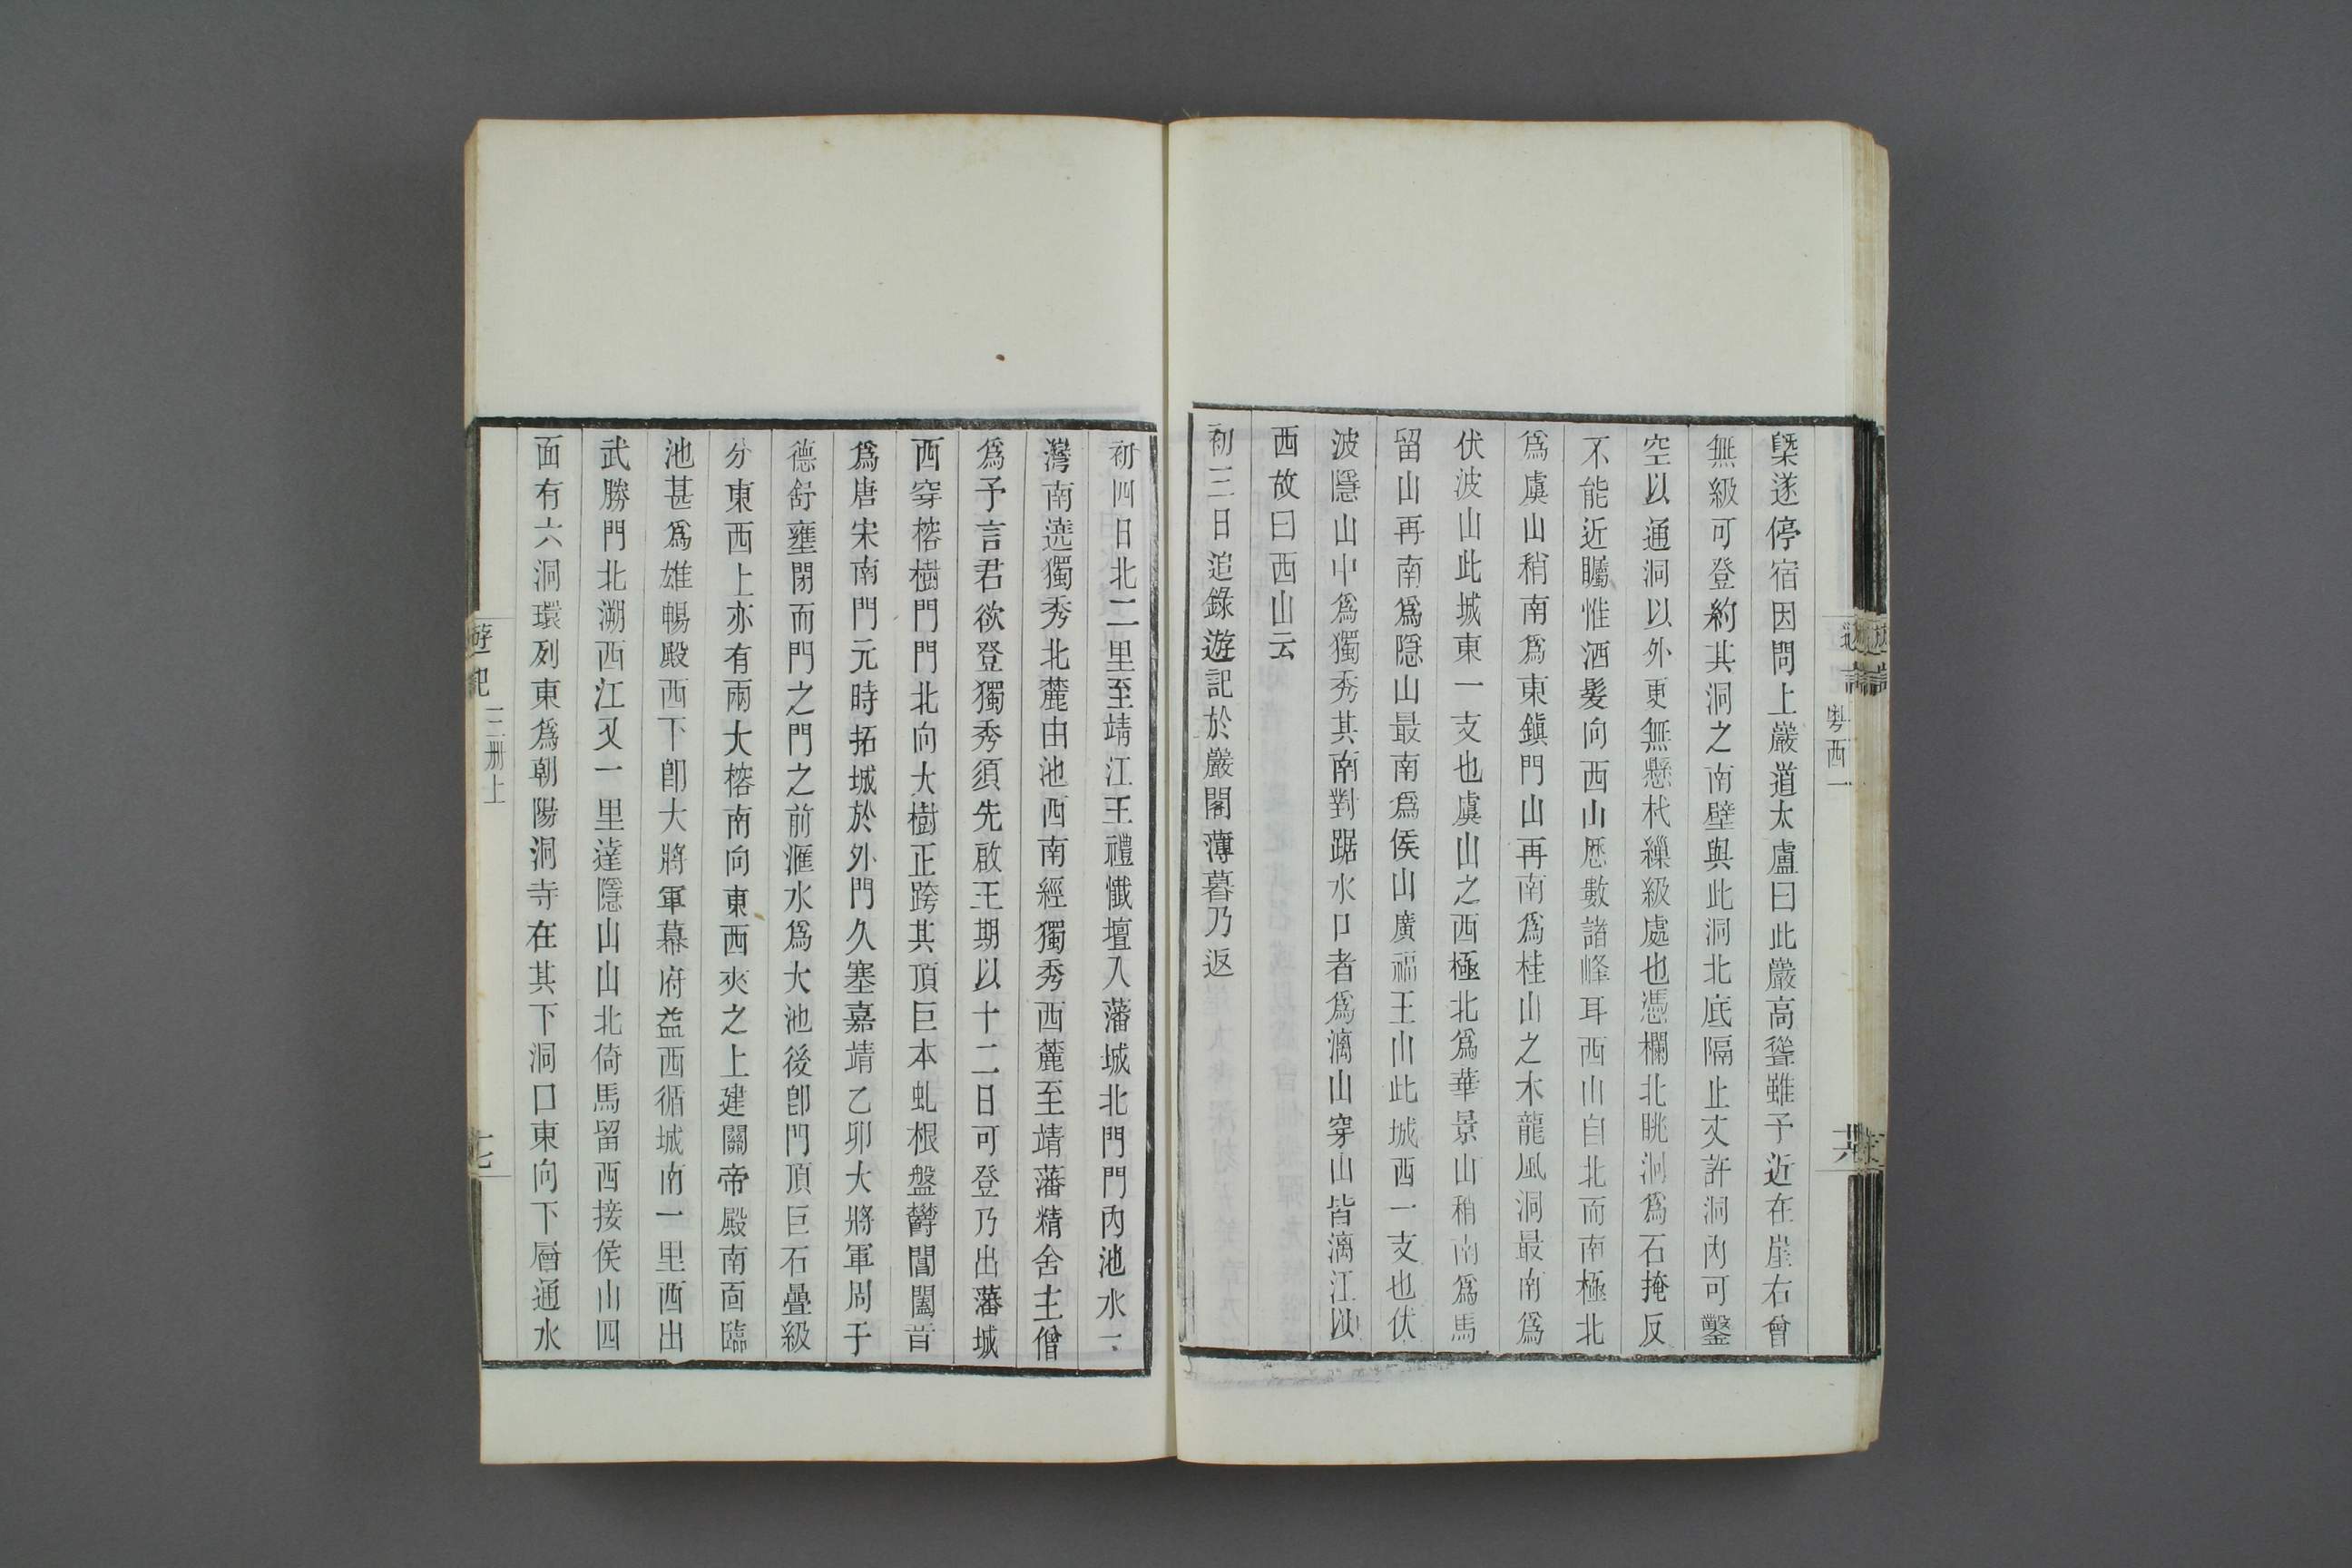 粤西一
槩遂停宿因問上巖道太盧曰此巖高聳雖予近在崖右曾
無級可登約其洞之南壁與此洞北底隔止丈許洞內可鑿
空以通洞以外更無懸杙纙級處也憑欄北眺洞爲石掩反
不能近矚惟洒髮向西山歷數諸峰耳西山自北而南極北
爲虞山稍南爲東鎭門山再南爲桂山之木龍風洞最南爲
伏波山此城東一支也虞山之西極北爲華景山稍南爲馬
留山再南爲隱山最南爲侯山廣福王山此城西一支也伏
波隱山中爲獨秀其南對踞水口者爲漓山穿山皆漓江以
西故曰西山云
初三日追錄遊記於巖閣薄暮乃返
初四日北二里至靖江王禮懺壇入藩城北門門內池水一
灣南遶獨秀北麓由池西南經獨秀西麓至靖藩精舍主僧
爲予言君欲登獨秀須先啟王期以十二日可登乃出藩城
西穿榕樹門門北向大樹正跨其頂巨本虬根盤欝閶闔昔
爲唐宋南門元時拓城於外門久塞嘉靖乙卯大將軍周于
德舒壅閉而門之門之前滙水爲大池後卽門頂巨石疊級
分東西上亦有兩大榕南向東西夾之上建關帝殿南面臨
池甚爲雄暢殿西下卽大將軍幕府益西循城南一里西出
武勝門北溯西江又一里達隱山山北倚馬留西接侯山四
面有六洞環列東爲朝陽洞寺在其下洞口東向下層通水
遊記 三冊上